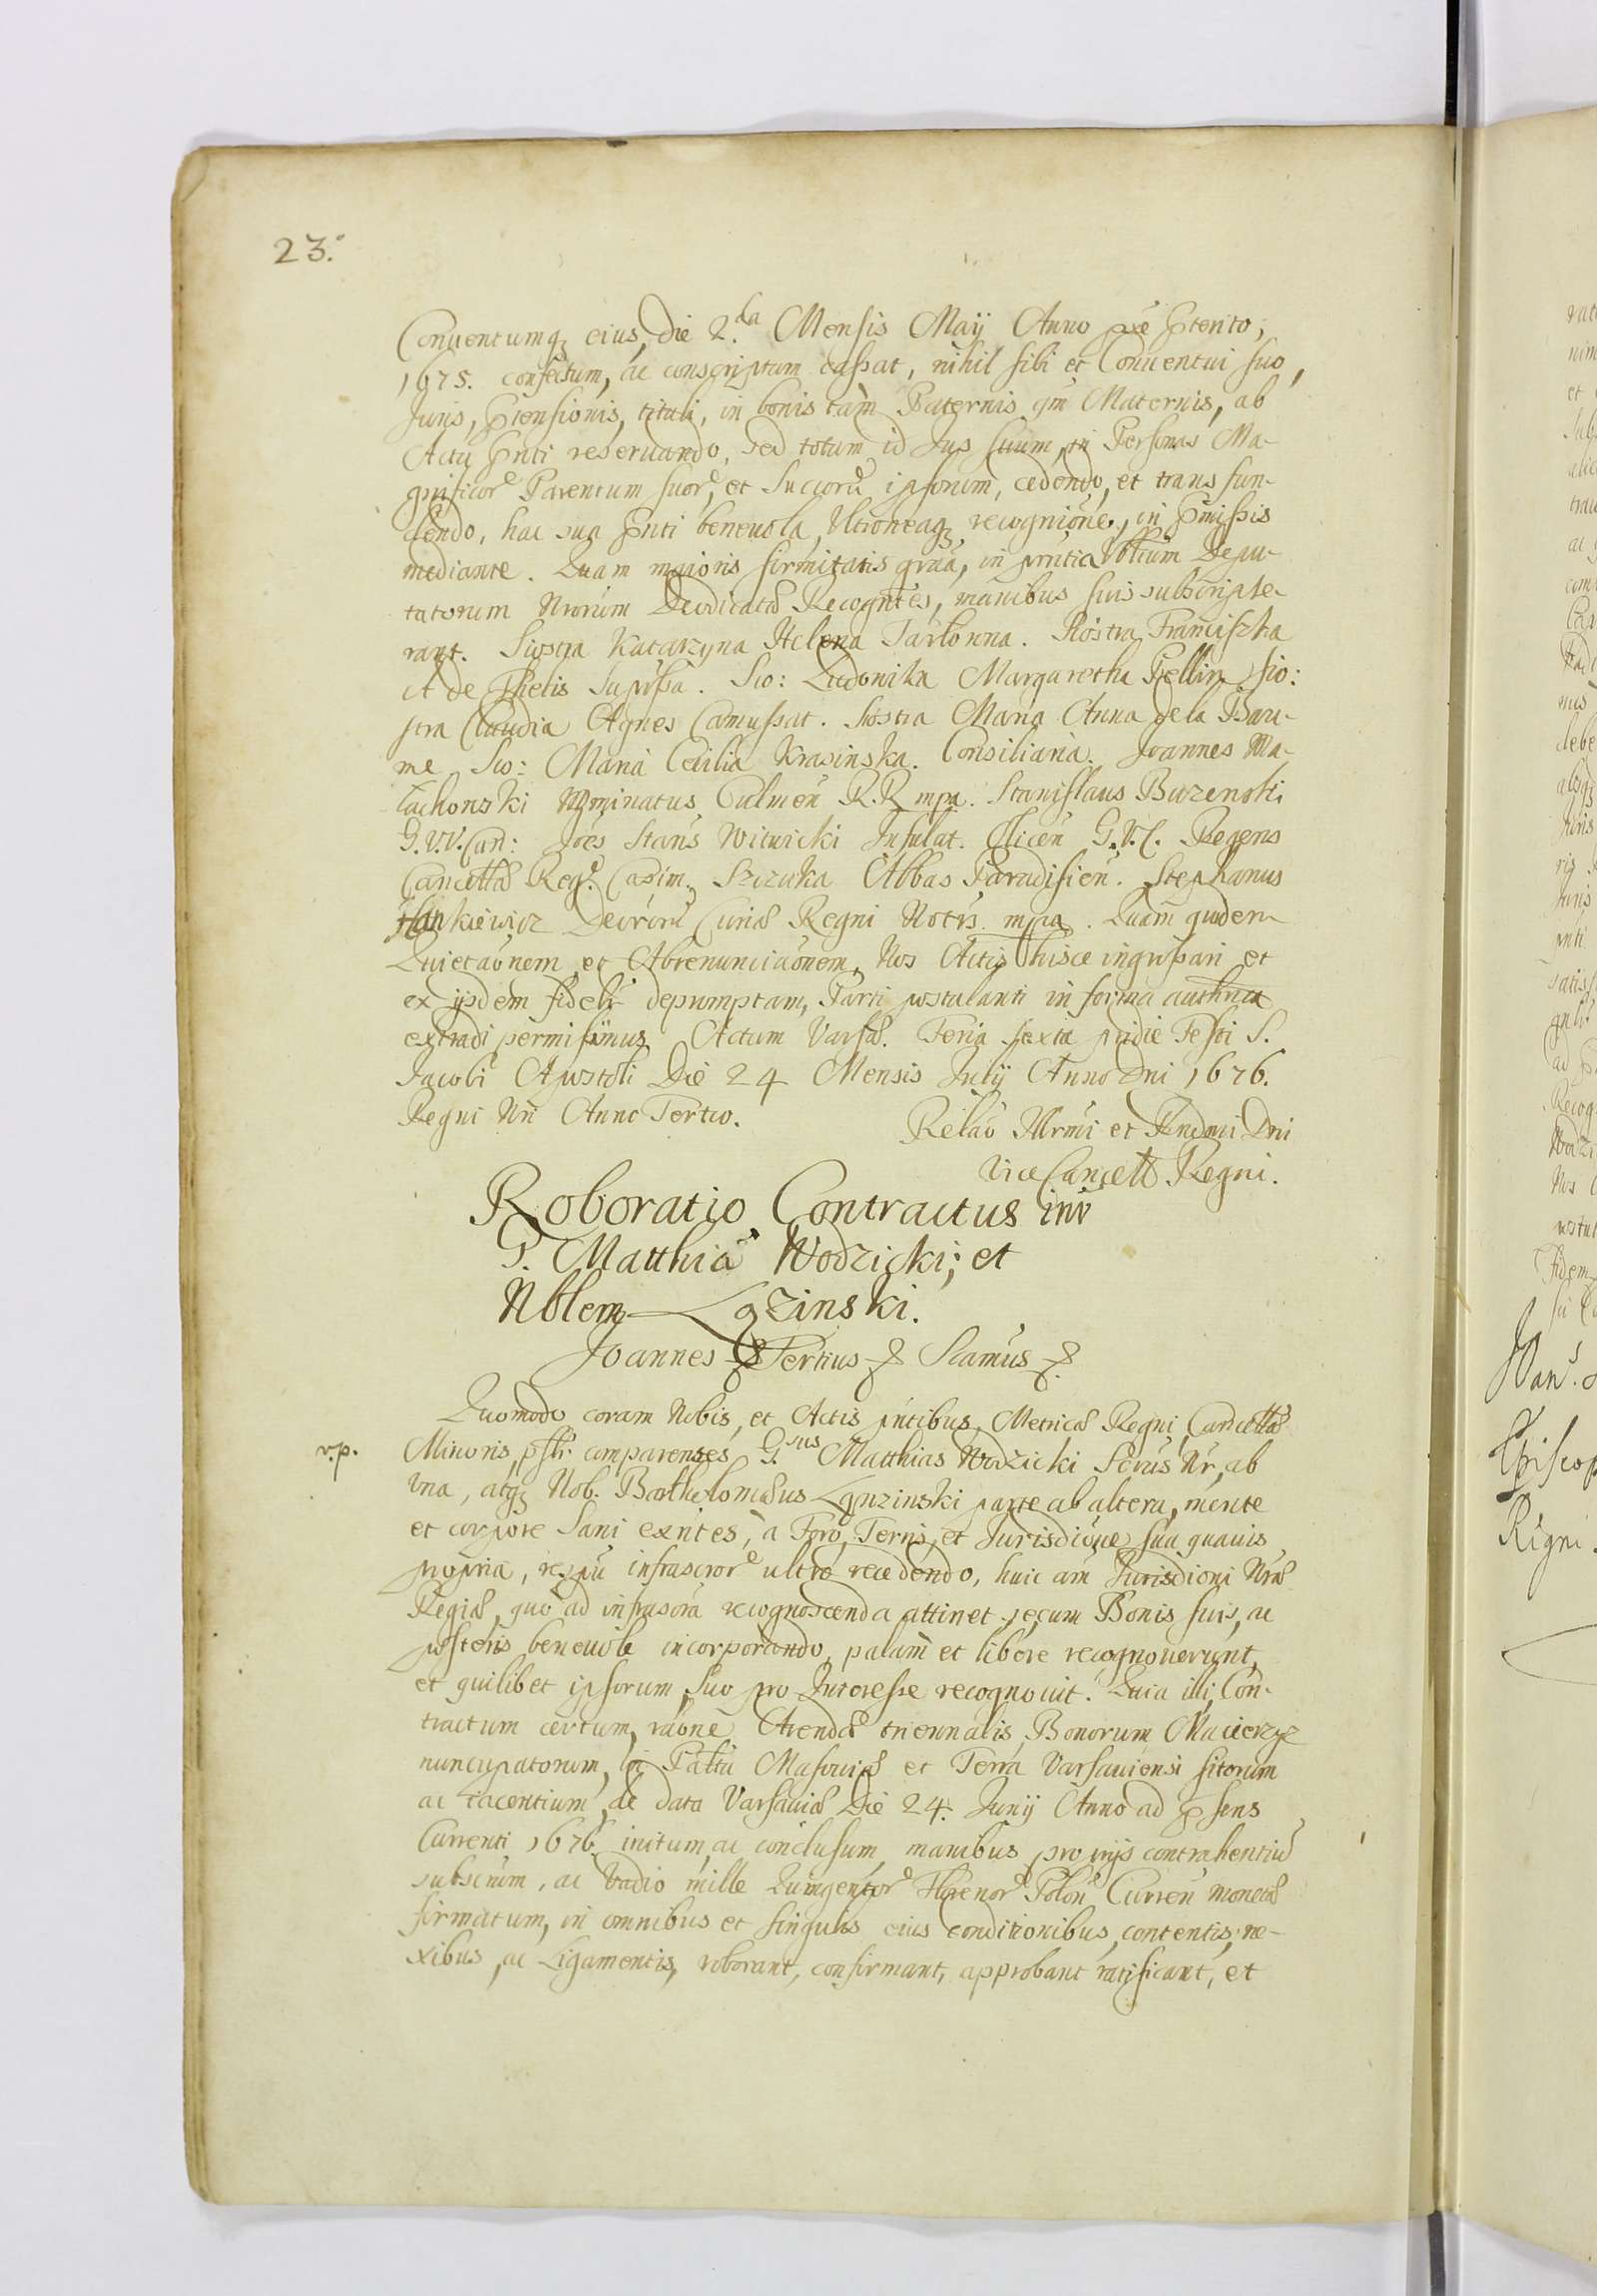 23.
Conventumq eius, die 2.da Mensis Maÿ Anno proxe Pterito,
1675. confectum, ac conscriptum cassat, nihil sibi et Conventui suo,
Juris, Ptensionis, tituli, in bonis tam Paternis qm Maternis, ab
Actu Pnti reservando, sed totum id Jus suum, in Personas Ma-
gnificor Parentum suor, et Succorũ ipsorum, cedendo, et trans fun-
dendo, hac sua Pnti benevola, Ultroneaq recognióne, in Pmissis
mediante. Quam maioris firmitatis grãa, in pñtia Nblium Depu-
tatorum Nrorum Deodicatæ Recogntes, manibus suis subscripse-
rant. Siostra Katarzyna Helena Tarłonna. Siostra Franciszka
A de Thelis Suprssa. Sio: Ludovika Margaretha Prellin Sio:
stra Claudia Agnes Camussat. Siostra Maria Anna de la Bau-
me Sio: Maria Cecilia Krasinska. Consiliaria. Joannes Ma-
łachowski Nominatus Culmeñ R.R mpa. Stanislaus Buzenski
G.V.V. Can: Jões Stanš Witwicki Infulat. Olicen G.V.C. Regens
Cancellæ Reg. Casim. Szczuka Abbas Paradisień. Stephanus
Hankiewicz Decrorũ Curiæ Regni Notrs. mpa. Quam quidem
Quietaõnem et Abrenunciaõnem, Nos Actis hisce ingrossari et
ex ijsdem fideler depromptam, Parti postulanti in forma authntca
extradi permisimus. Actum Varsæ. Feria sexta pridie Festi S.
Jacobi Apostoli Die 24 Mensis Julÿ Anno Dni 1676.
Regni Nri Anno Tertio.
Relao Illrmi et Rndmi Dni
Vice Cancell Regni.
Roboratio Contractus int
G. Matthiã Wodzicki; et
Nblem Lgzinski.
Joannes Tertius Scamus
Quomodo coram Nobis, et Actis pntibus Metricæ Regni Cancellæ
v.p.
Minoris, pslr. comparentes G.sus Matthias Wodzicki Servus Nr, ab
Una, atq Nob. Bartholomæus Lgnzinski parte ab altera, mente
et corpore Sani exntes, a Foro, Terris, et Jurisdióne sua quavis
propria, respu infrascror ultro recedendo, huic am Jurisdioni Nræ
Regiæ, quo ad infrascra recognoscenda attinet, se cum Bonis suis, ac
posteris benevole incorporando, palam et libere recognoverunt,
et quilibet ipsorum, Suo pro Interesse recognovit. Quia illi, Con-
tractum certum, raone Arendæ triennalis, Bonorum Macierzÿz
nuncupatorum, in Pallu Masoviæ et Terra Varsaviensi sitorum
ac iacentium, de data Varsaviæ Die 24. Junij Anno ad Psens
Currenti 1676, initum, ac conclusum, manibus proprijs contrahentiũ
subscrum, ac Vadio mille Quingentor Florenor Polon Curren monetæ
firmatum, in omnibus et singulis eius conditionibus, contentis, ne-
xibus, ac Ligamentis, roborant, confirmant, approbant ratificant, et